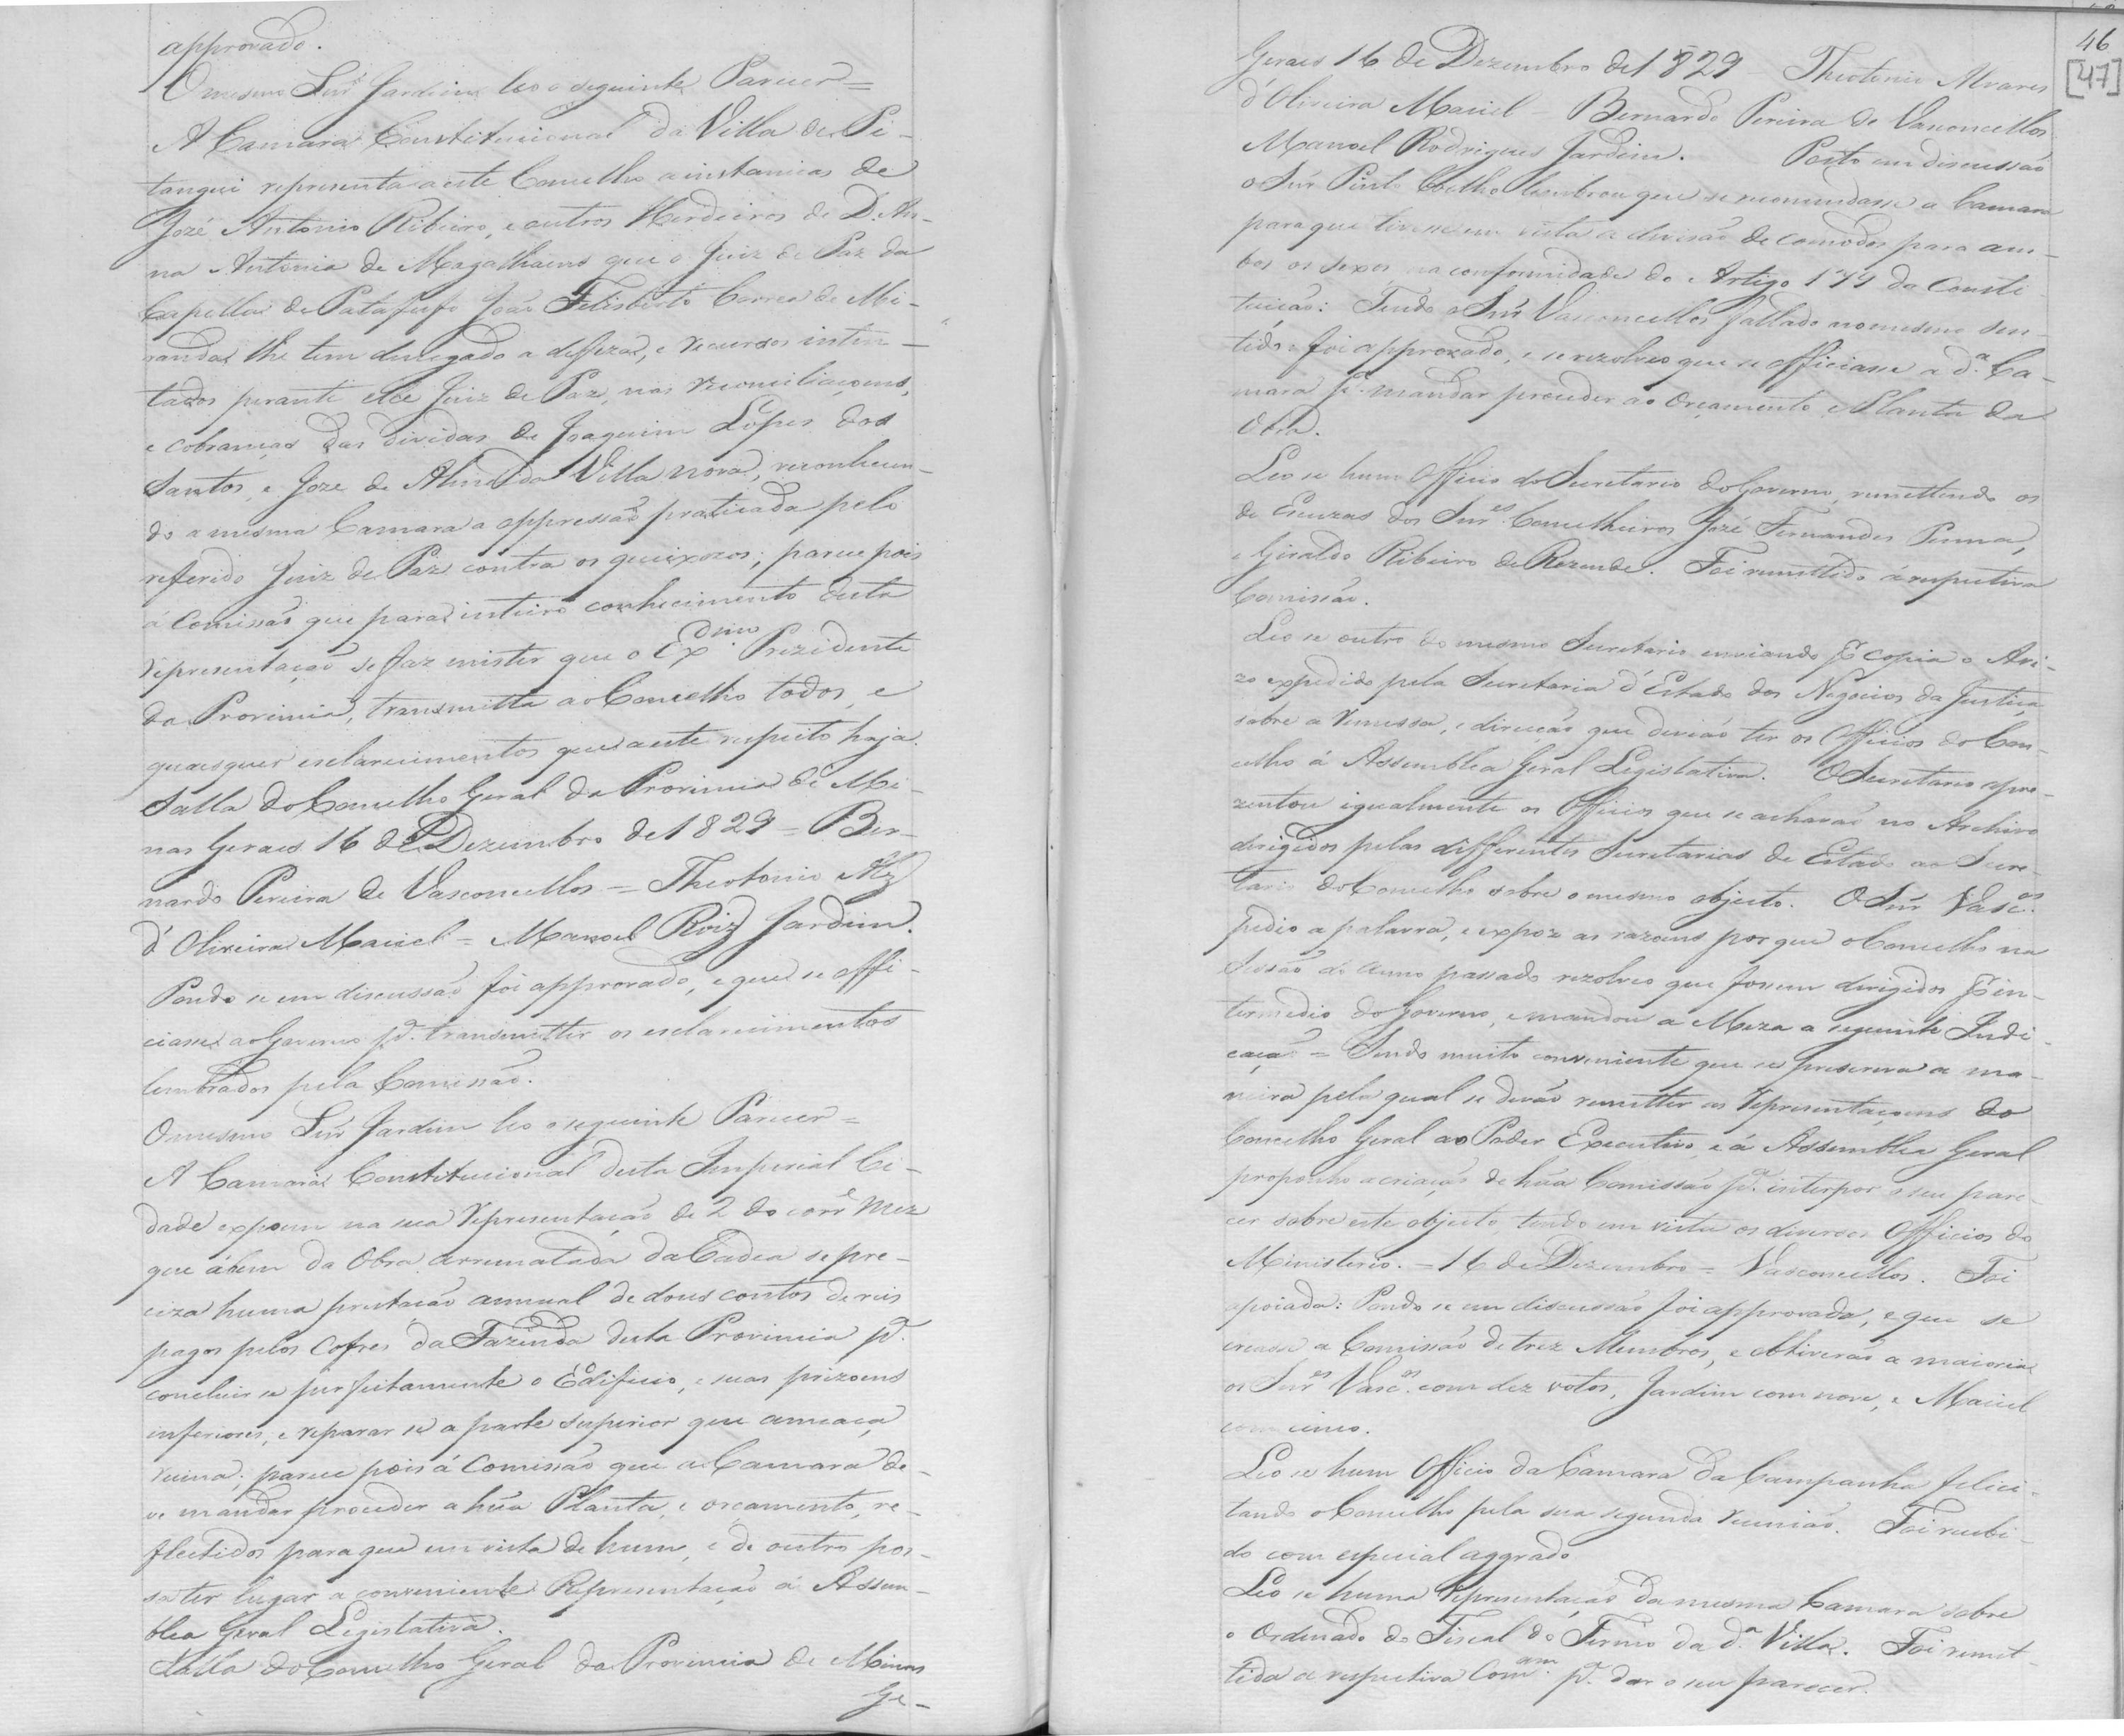 approvado.
O mesmo Snr̃ Jardim leo o seguinte Parecer =
A Camara Constitucional da Villa de Pi-
tangui representa a este Concelho a instancias de
Jozé Antonio Ribeiro, e outros Herdeiros de D. An-
na Antonia de Magalhaens que o Juiz de Paz da
Capella de Patafufo João Felisberto Correa de Mi-
randa lhe tem denegado a deffeza, e recursos inten-
tados perante elle Juiz de Paz, nas reconciliaçoens,
e cobranças das dividas de Joaquim Lopes dos
Santos, e Joze de Almeida Villa nova, reconhecen-
do a mesma Camara a oppressão praticada pelo
referido Juiz de Paz contra os queixozos; parece pois
á Comissão que para inteiro conhecimento desta
representação se faz mister que o Ex.mo Prezidente
da Provincia, transmitta ao Concelho todos, e
quaesquer esclarecimentos que a este respeito haja.
Salla do Concelho Geral da Provincia de Mi-
nas Geraes 16 de Dezembro de 1829 = Ber-
nardo Pereira de Vasconcellos = Theotonio Alz
d'Oliveira Maciel = Manoel Roiz Jardim.
Pondo se em discussão foi approvado, e que se offi-
ciasse ao Governo p.ª transmitter os esclarecimentos
lembrados pela Comissão.
O mesmo Snr̃ Jardim leo o seguinte Parecer =
A Camara Constitucional desta Imperial Ci-
dade expoem na sua representação de 2 do corr.e mez
que álem da Obra arrematada da Cadea se pre-
ciza huma prestação annual de dous contos de reis
pagos pelos Cofres da Fazenda desta Provincia p.ª
concluir se perfeitamente o Edificio, e suas prizoens
inferiores, e reparar se a parte superior que ameaça
ruina; parece pois á Comissão que a Camara de-
ve mandar proceder a hũa Planta, e orçamento, re-
flectidos para que em vista de hum, e de outro pos-
sa ter lugar a conveniente Representação á Assem-
blea Geral Legislativa.
Salla do Concelho Geral da Provincia de Minas
Ge-
46
[47]
Geraes 16 de Dezembro de 1829 Theotonio Alvares
d'Oliveira Maciel - Bernardo Pereira de Vasconcellos
Manoel Rodrigues Jardim. Posto em discussão
o Snr̃ Pinto Coelho lembrou que se recomendasse a Camara
para que tivesse em vista a divisão de comodos para am-
bos os sexos na conformidade do Artigo 179 da Consti
tuição: Tendo o Snr̃ Vasconcellos fallado no mesmo sen-
tido foi approvado, e se rezolveo que se officiasse a d.ª Ca-
mara p.ª mandar proceder ao Orçamento, e Planta da
Obra.
Leo se hum Officio do Secretario do Governo, remettendo os
de Escuzas dos Snr.es Concelheiros Jozé Fernandes Penna,
e Giraldo Ribeiro de Rezende. Foi remettido á respectiva
Comissão.
Leo se outro do mesmo Secretario enviando por copia o Avi-
zo expedido pela Secretaria d'Estado dos Negocios da Justiça
sobre a remessa, e direcção que devião ter os Officios do Con-
celho á Assemblea Geral Legislativa. O Secretario apre-
zentou igualmente os Officios que se achavão no Archivo
dirigidos pelas differentes Secretarias de Estado ao Secre-
tario do Concelho sobre o mesmo objecto. O Snr̃ Vasc.os
pedio a palavra, e expoz as razoens por que o Concelho na
Sessão do anno passado rezolveo que fossem dirigidos por in-
termedio do Governo, e mandou a Meza a seguinte Indi-
cação = Sendo muito conveniente que se prescreva a ma-
neira pela qual se devão remetter as representaçoens do
Concelho Geral ao Poder Executivo, e á Assemblea Geral
proponho a criação de hũa Comissão p.ª interpor o seu pare-
cer sobre este objecto, tendo em vista os diversos Officios do
Ministerio. = 16 de Dezembro = Vasconcellos. Foi
apoiada: Pondo se em discussão foi approvada, e que se
creasse a Comissão de trez Membros, e obtiverão a maioria
os Snr.es Vasc.os com dez votos, Jardim com nove, e Maciel
com cinco.
Leo se hum Officio da Camara da Campanha felici-
tando o Concelho pela sua segunda reunião. Foi recebi-
do com especial aggrado
Leo se huma representação da mesma Camara sobre
o Ordenado do Fiscal do Termo da d.ª Villa. Foi remet-
tida a respectiva Com.am p.ª dar o seu parecer.